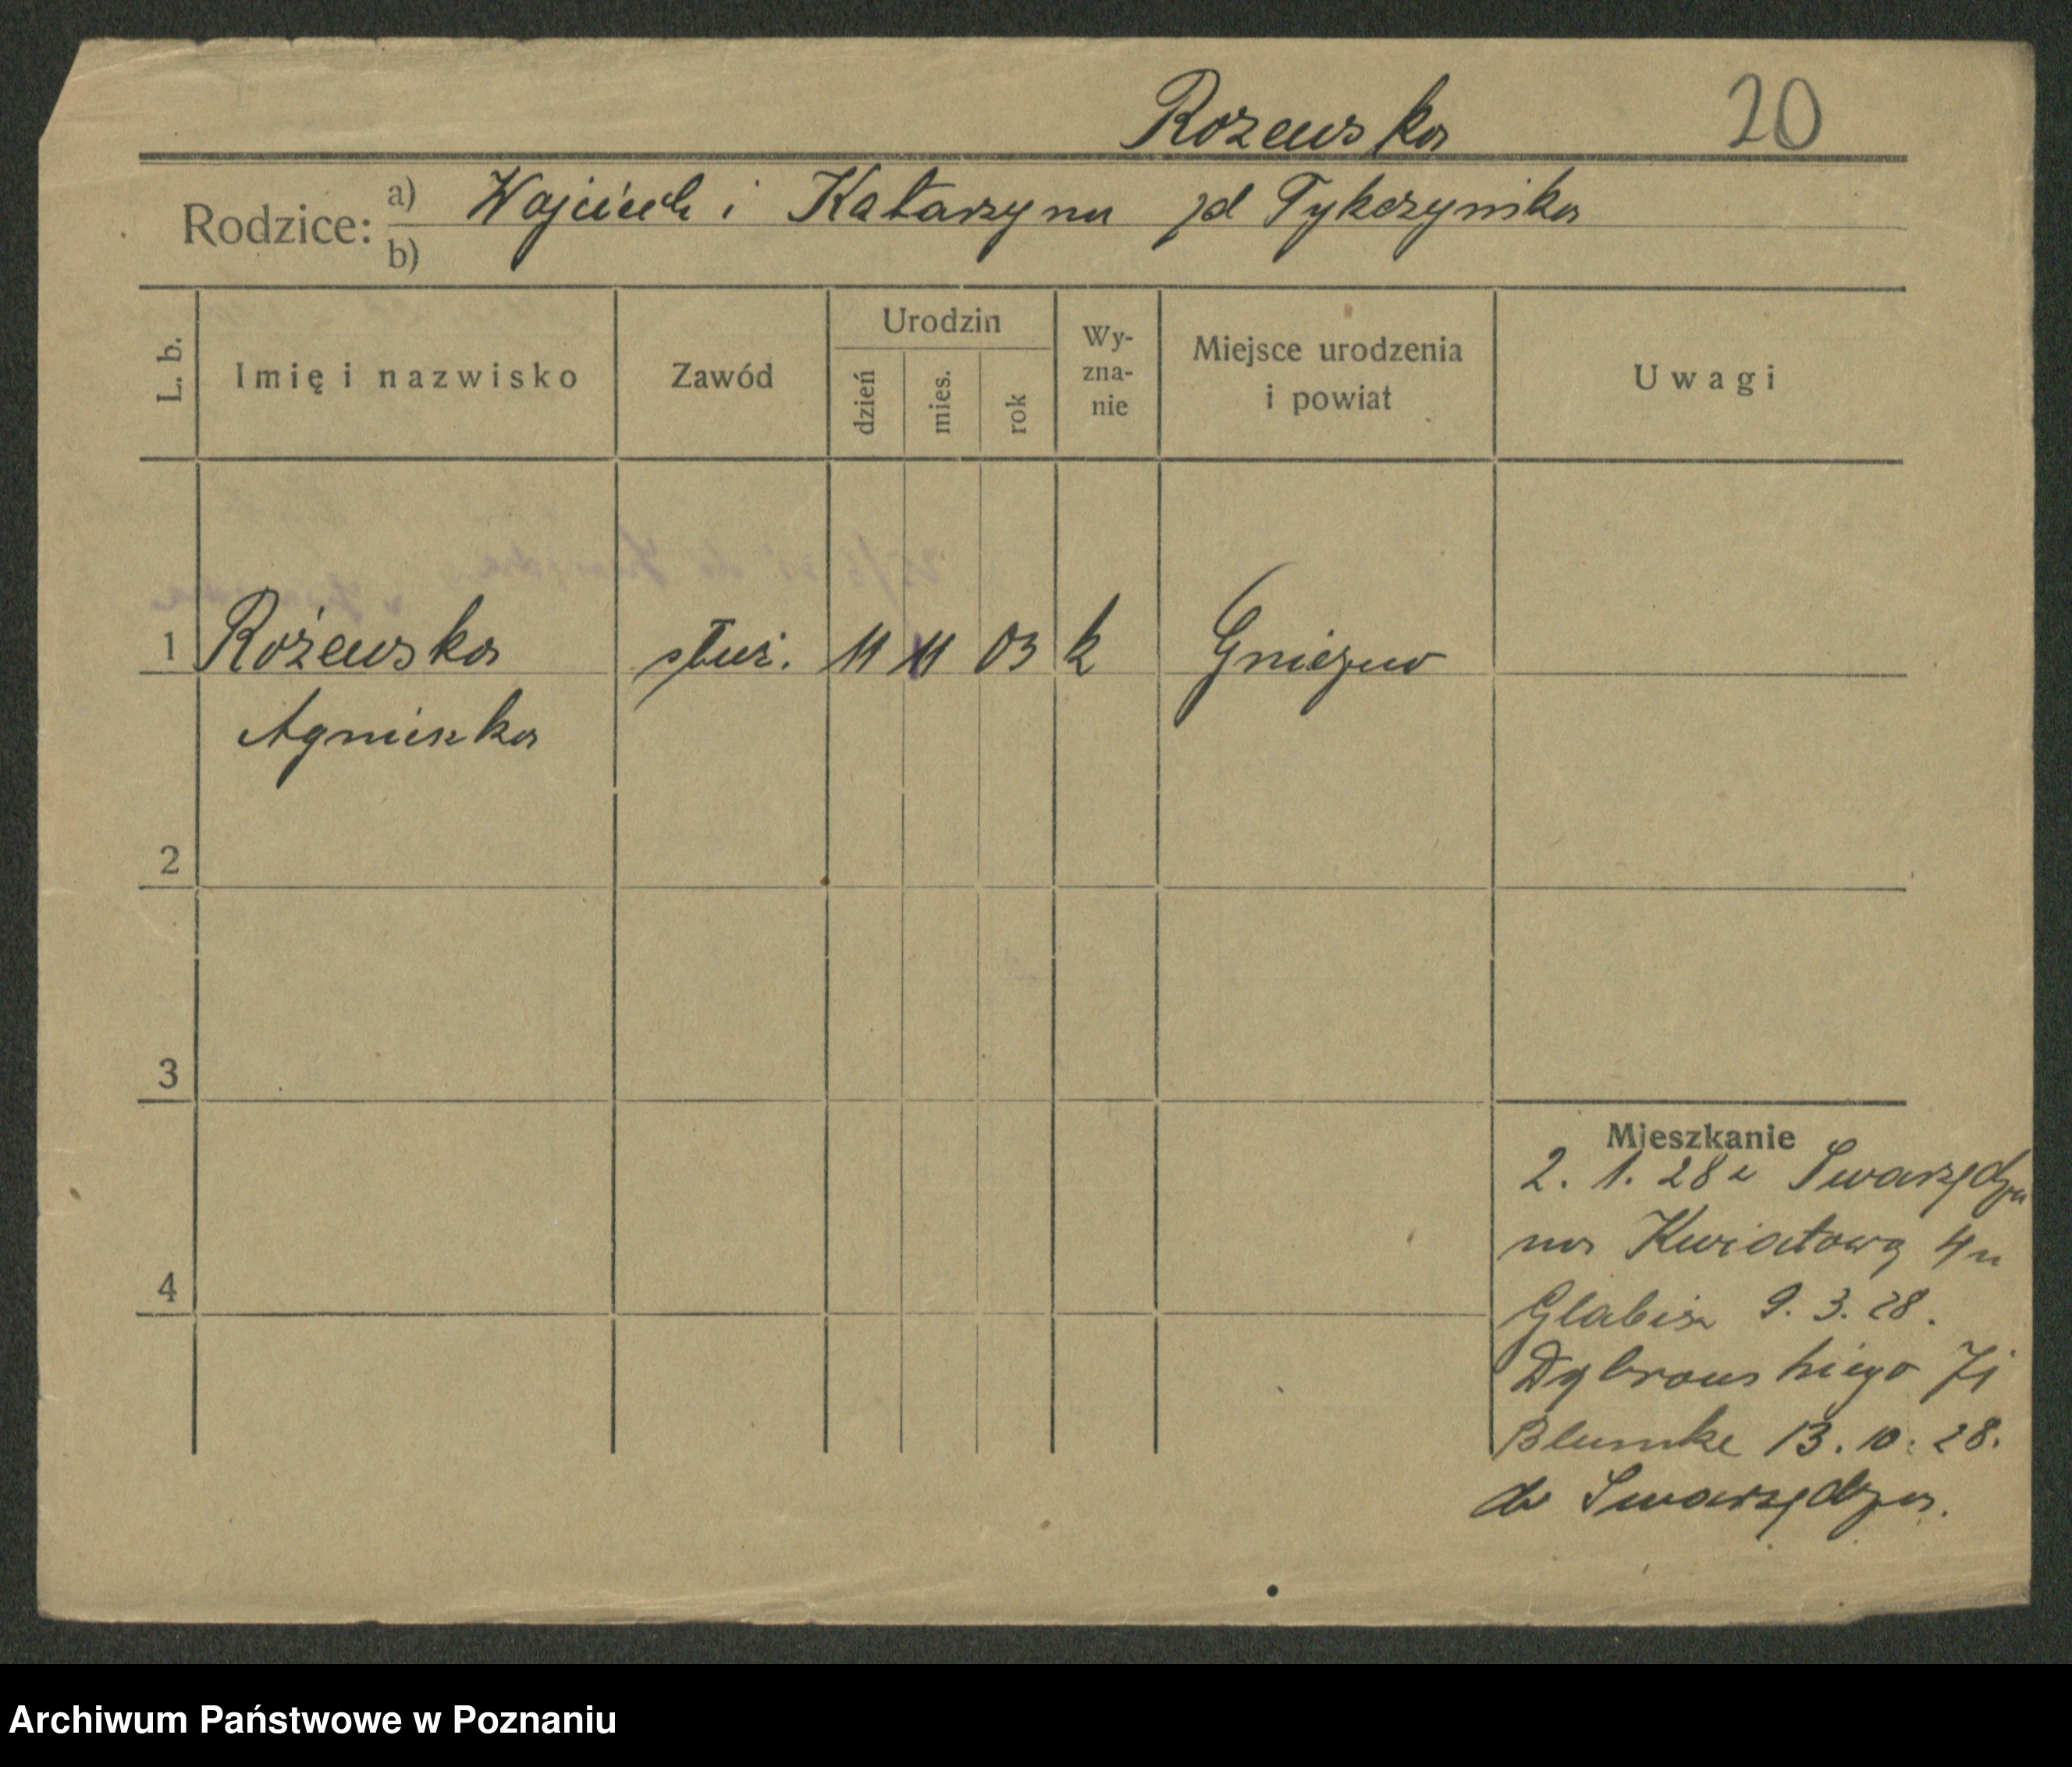 Rozewska 20
Rodzice: a) Wojciech i Katarzyna
b)
L. b. Imię i nazwisko Zawód Urodzin dzień mies. rok Wy-zna-nie Miejsce urodzenia i powiat Uwagi
1 Rożewska służ. 11 11 03 k Gniezno
Agnieszka
2
3
4
Mieszkanie
2. 1. 28 z Swarzędza
na Kwiatową 4 u
Glabisz 9. 3. 28.
Dąbrowskiego
Blumke 13. 10. 28.
do Swarzędza.
Archiwum Państwowe w Poznaniu